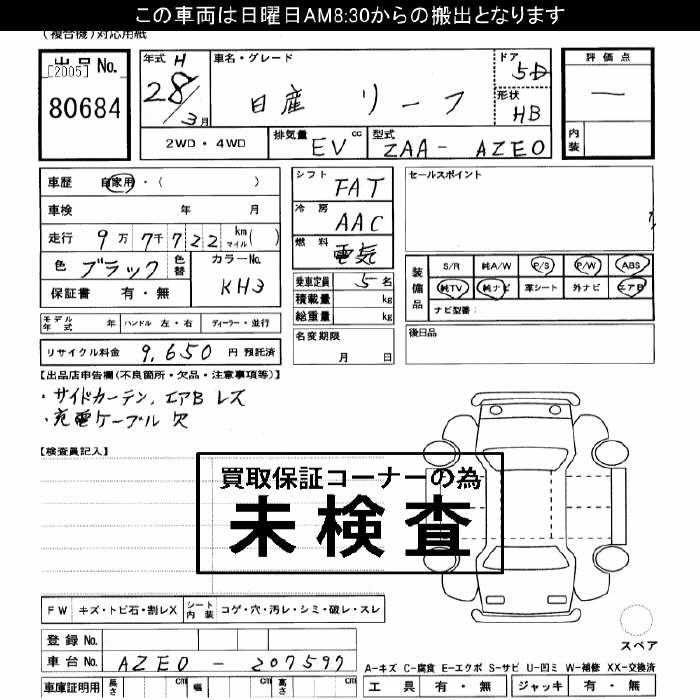 この車両は日曜日AM8:30からの搬出となります
(複合機)対応用紙
出品No.
[2005]
80684
年式 H
28/3月
車名・グレード
日産 リーフ
ドア
5D
形状
HB
評価点
―
内装
2WD・4WD
排気量 EV cc
型式 ZAA- AZE0
車歴 自家用・( )
車検 年 月
走行 9万7千722 km マイル( )
色 ブラック 色替
カラーNo.
KH3
保証書 有・無
シフト FAT
冷房 AAC
燃料 電気
乗車定員 5名
積載量 kg
総重量 kg
セールスポイント
装備品
S/R 純A/W P/S P/W ABS
純TV 純ナビ 革シート 外ナビ エアB
ナビ型番:
モデル年式 年 ハンドル 左・右 ディーラー・並行
名変期限
月 日
後日品
リサイクル料金 9,650 円 預託済
【出品店申告欄(不良箇所・欠品・注意事項等)】
・サイドカーテン,エアB レス
・充電ケーブル 欠
【検査員記入】
買取保証コーナーの為
未検査
FW キズ・トビ石・割レX シート内装 コゲ・穴・汚レ・シミ・破レ・スレ
スペア
登録No.
車台No. AZE0 - 207597
A-キズ C-腐食 E-エクボ S-サビ U-凹ミ W-補修 XX-交換済
車庫証明用 長さ cm 幅 cm 高さ cm
工具 有・無 ジャッキ 有・無